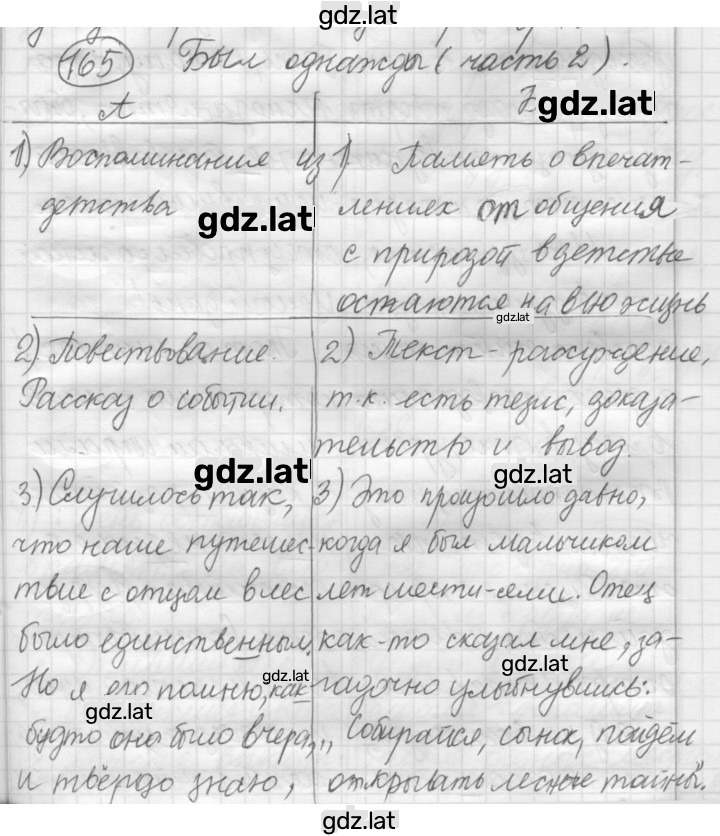 gdz.lat
165 Был однажды (часть 2).
А
gdz.lat
1) Воспоминание из
детства
gdz.lat
1) Память о впечат-
лениях от общения
с природой в детстве
остаются на всю жизнь
gdz.lat
2) Повествование.
Рассказ о событии.
2) Текст - рассуждение,
т.к. есть тезис, доказа-
тельство и вывод.
gdz.lat
gdz.lat
3) Случилось так,
что наше путешес-
твие с отцом в лес
было единственным.
Но я его помню, как
gdz.lat
gdz.lat
будто оно было вчера,
и твёрдо знаю,
3) Это произошло давно,
когда я был мальчиком
лет шести-семи. Отец
как-то сказал мне, за-
gdz.lat
гадочно улыбнувшись:
„Собирайся, сынок, пойдём
открывать лесные тайны.
gdz.lat